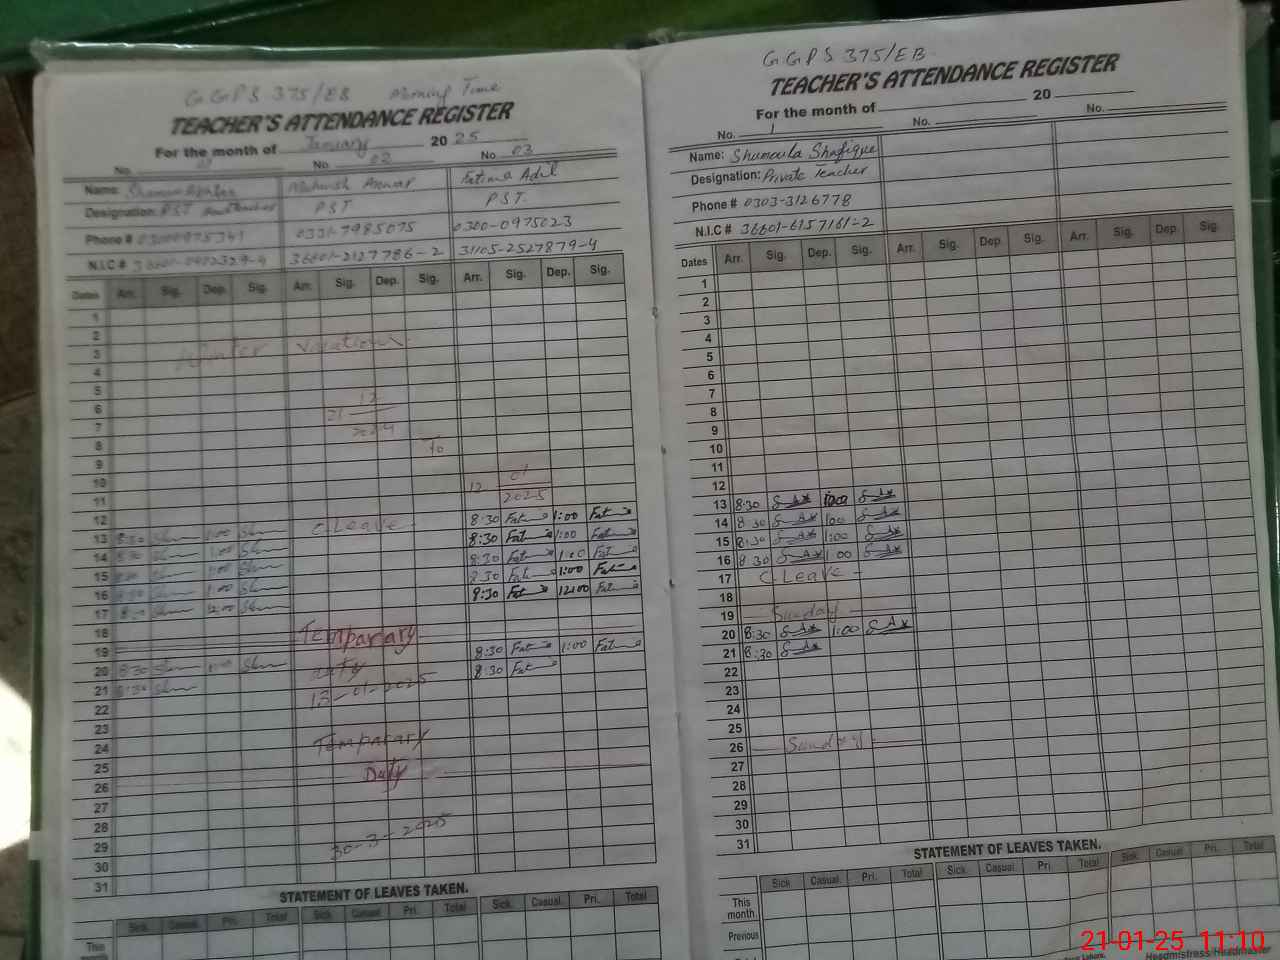 G G P S 375/EB Morning Time
TEACHER'S ATTENDANCE REGISTER
For the month of January 20 25
No. 01 No. 02 No. 03
Name: Mehwish Anwar Fatima Adil
Designation: PST Head Teacher PST PST.
Phone # 03000975341 0331-7985075 0300-0975023
N.I.C # 36601-0402329-4 36601-2127786-2 31105-2527879-4
Dates Arr. Sig. Dep. Sig. Arr. Sig. Dep. Sig. Arr. Sig. Dep. Sig.
1
2
3 Winter vacations
4
5
6 12
7 21 2024
8 To
9
10 01
11 12 2025
12 C.Leave 8:30 Fat 1:00 Fat
13 8:30 Sh 1:00 Sh 8:30 Fat 1:00 Fat
14 8:30 Sh 1:00 Sh 8:30 Fat 1:00 Fat
15 8:30 Sh 1:00 Sh 8:30 Fat 1:00 Fat
16 8:30 Sh 1:00 Sh 8:30 Fat 12:00 Fat
17 8:30 Sh 12:00 Sh
18 Temparary
19 8:30 Fat 1:00 Fat
20 8:30 Sh 1:00 Sh duty 8:30 Fat
21 8:30 Sh 13-01-2025
22
23
24 Temparary
25
26 Duty
27
28
29 30-3-2025
30
31
STATEMENT OF LEAVES TAKEN.
Sick Casual Pri. Total Sick Casual. Pri. Total Sick. Casual. Pri. Total
This
G G P S 375/EB
TEACHER'S ATTENDANCE REGISTER
For the month of 20
No. 1 No. No.
Name: Shumaila Shafique
Designation: Private Teacher
Phone # 0303-3126778
N.I.C # 36601-6157161-2
Dates Arr. Sig. Dep. Sig. Arr. Sig. Dep. Sig. Arr. Sig. Dep. Sig.
1
2
3
4
5
6
7
8
9
10
11
12
13 8:30 1:00
14 8:30 1:00
15 8:30 1:00
16 8:30 1:00
17 C.Leave -
18
19 Sunday
20 8:30 1:00
21 8:30
22
23
24
25
26 Sunday
27
28
29
30
31
STATEMENT OF LEAVES TAKEN.
Sick Casual. Pri. Total Sick. Casual. Pri. Total Sick. Casual Pri. Total
This
month.
Previous
Headmistress/Headmaster
21-01-25 11:10